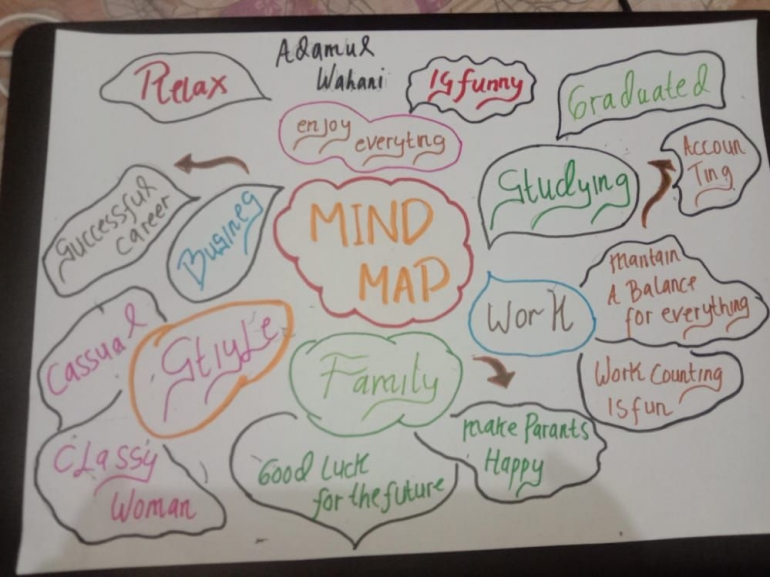 Adamul
Wahani
Relax
Is funny
Graduated
enjoy
everyting
Studying
Accoun
Ting
Successful
career
Busines
MIND
MAP
Work
Mantain
A Balance
for everything
Cassual
Stiyle
Family
Work Counting
Is fun
Classy
Woman
Good Luck
for the future
make Parants
Happy